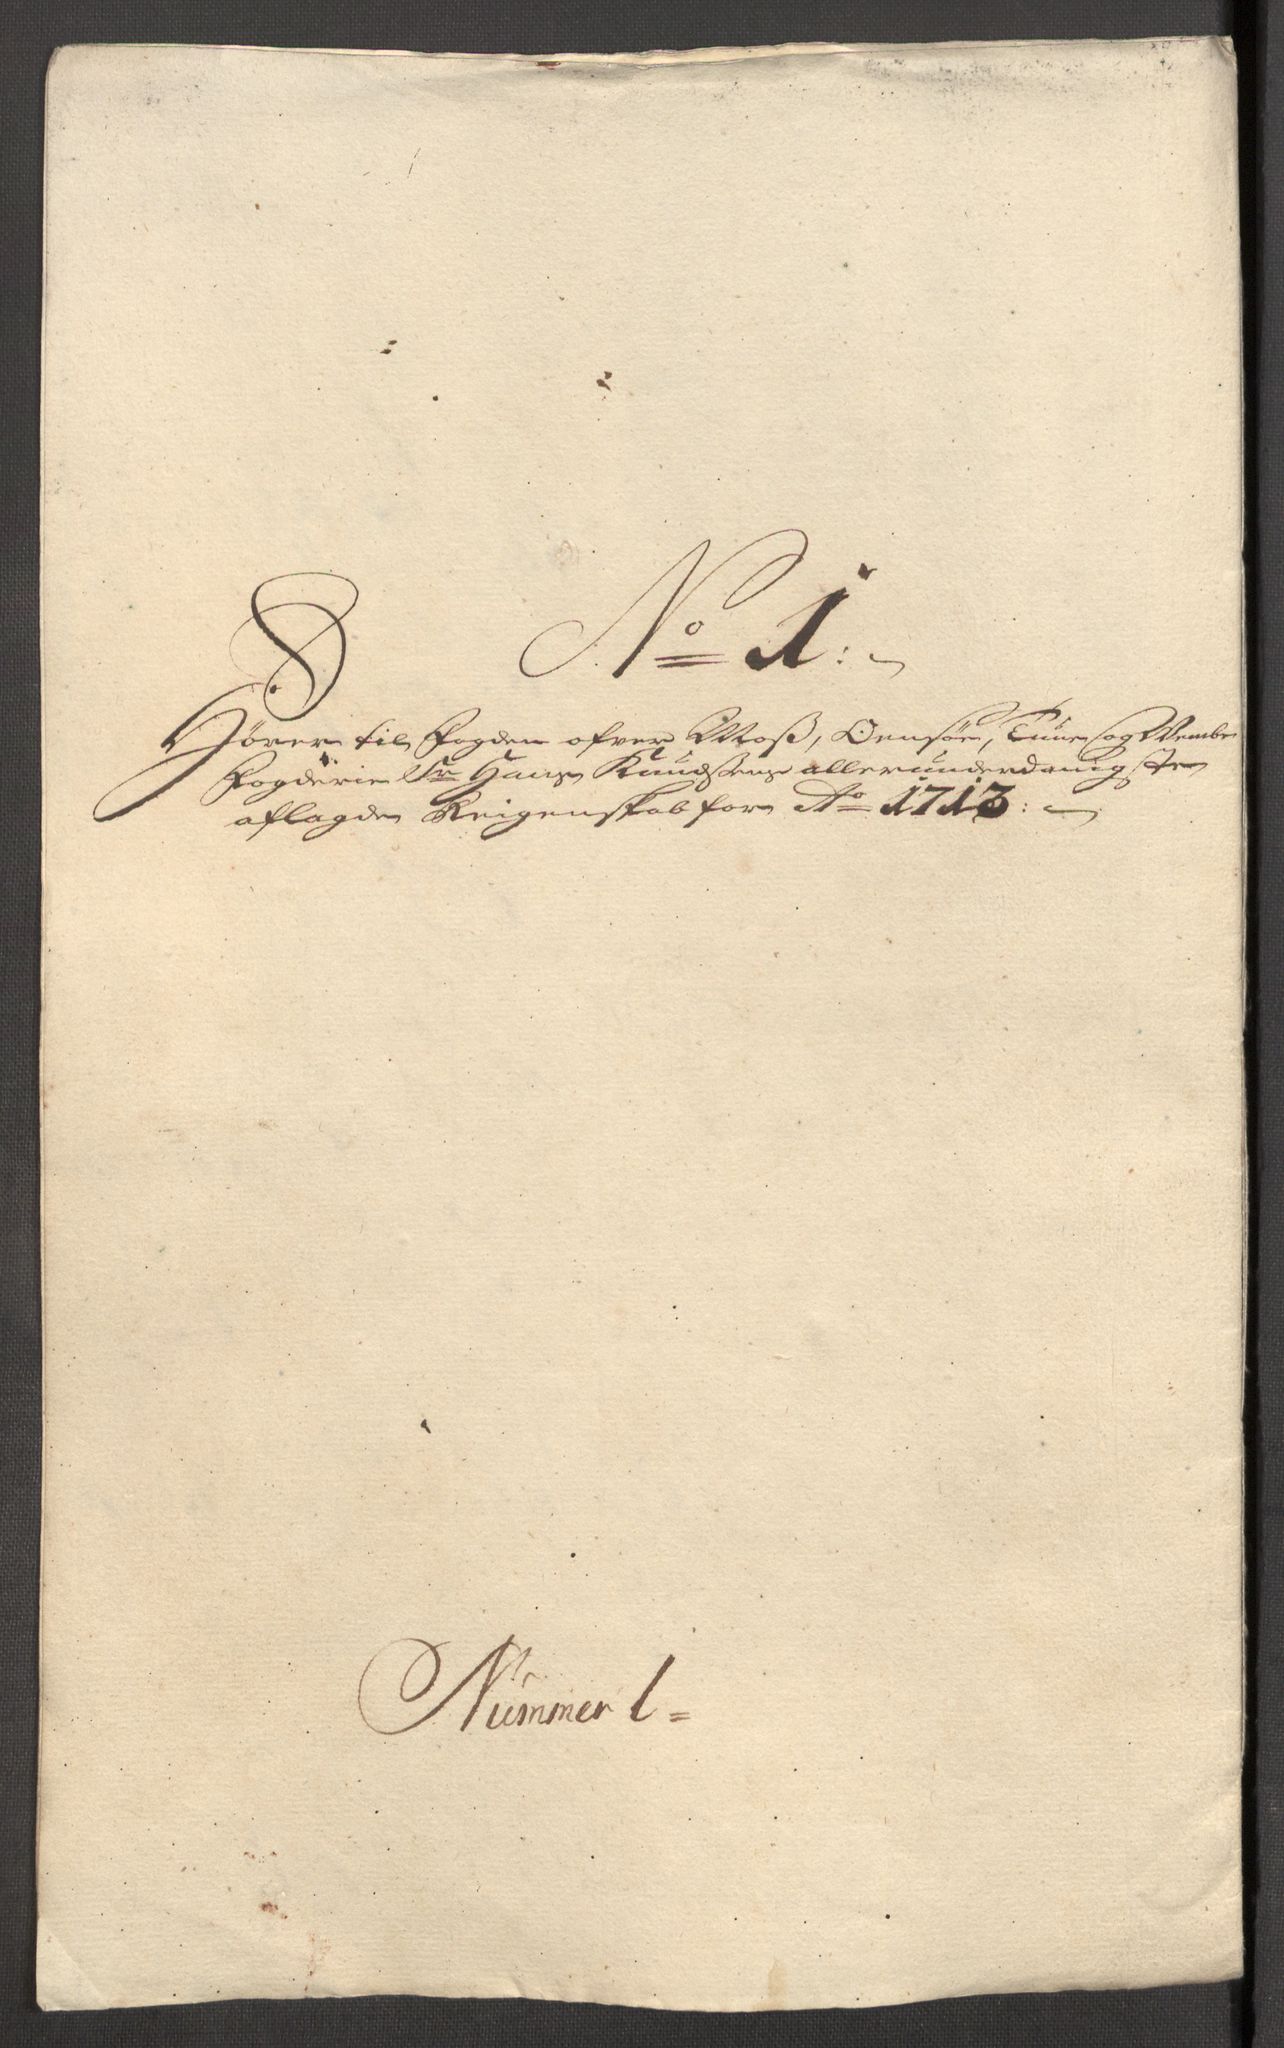 No 1:
Hører til Fogden ofver Moß, Onsøe, Tune og Wembe
Fogderie Sr Hans Knudsens allerunderdanigste
aflagde Reigenskab for Ao 1713:
Nummer 1=